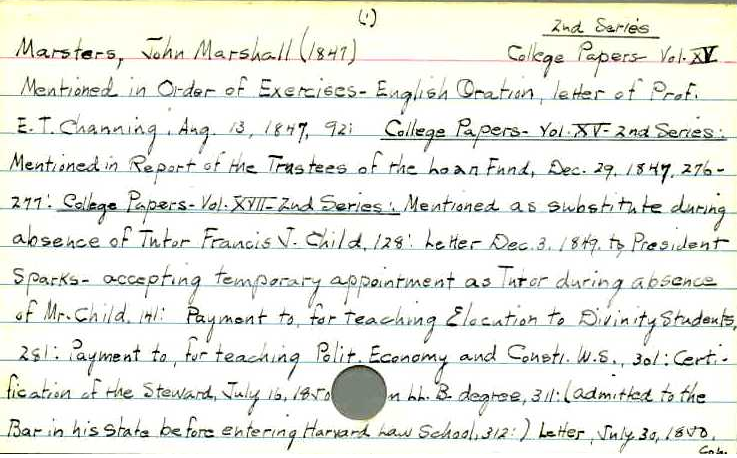 (1)
2nd Series
Marsters, John Marshall (1847) College Papers- Vol. XV
Mentioned in Order of Exercises- English Oration, letter of Prof.
E. T. Channing, Aug. 13, 1847, 92: College Papers- Vol. XV- 2nd Series:
Mentioned in Report of the Trustees of the Loan Fund, Dec. 29, 1847, 276-
277: College Papers- Vol. XVII- 2nd Series: Mentioned as substitute during
absence of Tutor Francis J. Child, 128: Letter Dec. 3, 1849, to President
Sparks- accepting temporary appointment as Tutor during absence
of Mr. Child, 141: Payment to, for teaching Elocution to Divinity Students,
281: Payment to, for teaching Polit. Economy and Consti. U.S., 301: Certi-
fication of the Steward, July 16, 1850 n LL. B. degree, 311: (admitted to the
Bar in his State before entering Harvard Law School, 312:) Letter, July 30, 1850,